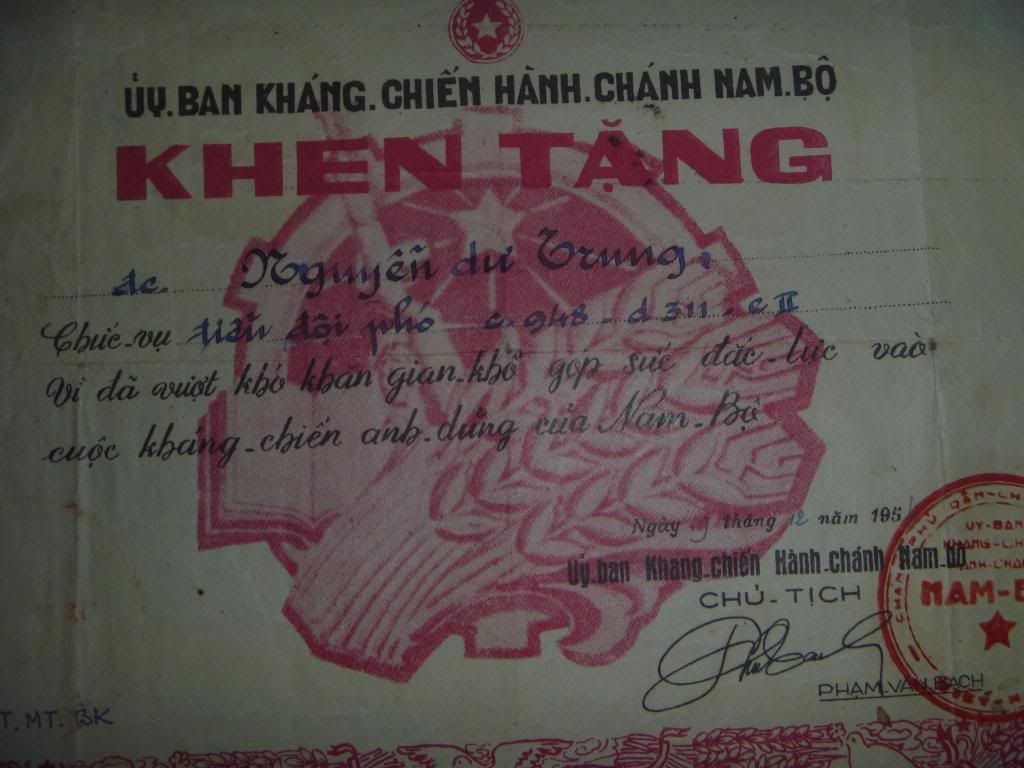 ỦY.BAN KHÁNG.CHIẾN HÀNH.CHÁNH NAM.BỘ
KHEN TẶNG
đc. Nguyễn dư Trung.
Chức-vụ tiểu đội phó c.948 - d 311. e II
Vì đã vượt khó khăn gian-khổ góp sức đắc-lực vào
cuộc kháng-chiến anh-dũng của Nam-Bộ
Ngày tháng 12 năm 195
Ủy.ban Kháng-chiến Hành-chánh Nam.bộ
CHỦ-TỊCH
PHẠM-VĂN-BẠCH
ỦY-BAN
NAM-B
T. MT. BK